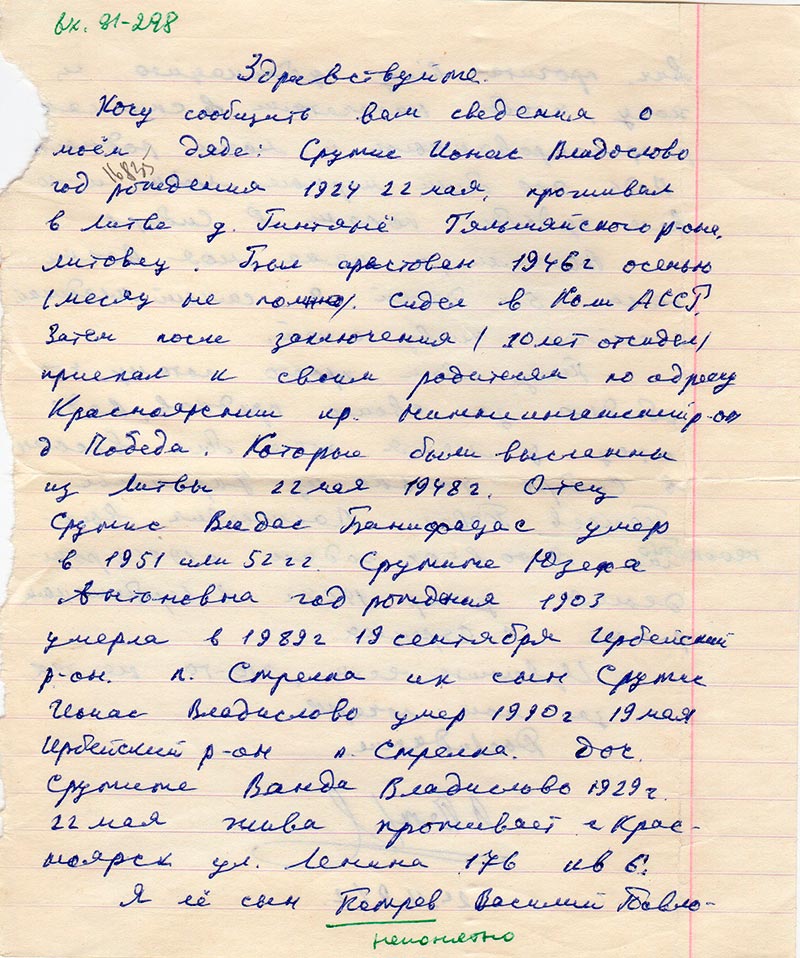 вх. 91-298
Здравствуйте.
Хочу сообщить вам сведения о
моём дяде: Сружис Ионас Владослово
16825
год рождения 1924 22 мая, проживал
в Литве д. Гинтянё Тяльшяйского р-она,
литовец. Был арестован 1946г осенью
/месяц не помню/. Сидел в Коми АССР.
Затем после заключения /10 лет отсидел/
приехал к своим родителям по адресу
Красноярский кр. Нижнеингашский р-он
д Победа. Которые были высланы
из Литвы 22 мая 1948г. Отец
Сружис Владас Банифацас умер
в 1951 или 52 гг. Сружите Юзефа
Антановна год рождения 1903
умерла в 1989г 19 сентября Ирбейский
р-он. п. Стрелка их сын Сружис
Ионас Владислово умер 1990г 19 мая
Ирбейский р-он п. Стрелка. Доч.
Сружите Ванда Владислово 1929г.
22 мая жива проживает г Крас-
ноярск ул. Ленина 176 кв 6.
Я её сын Василий Павло-
непонятно